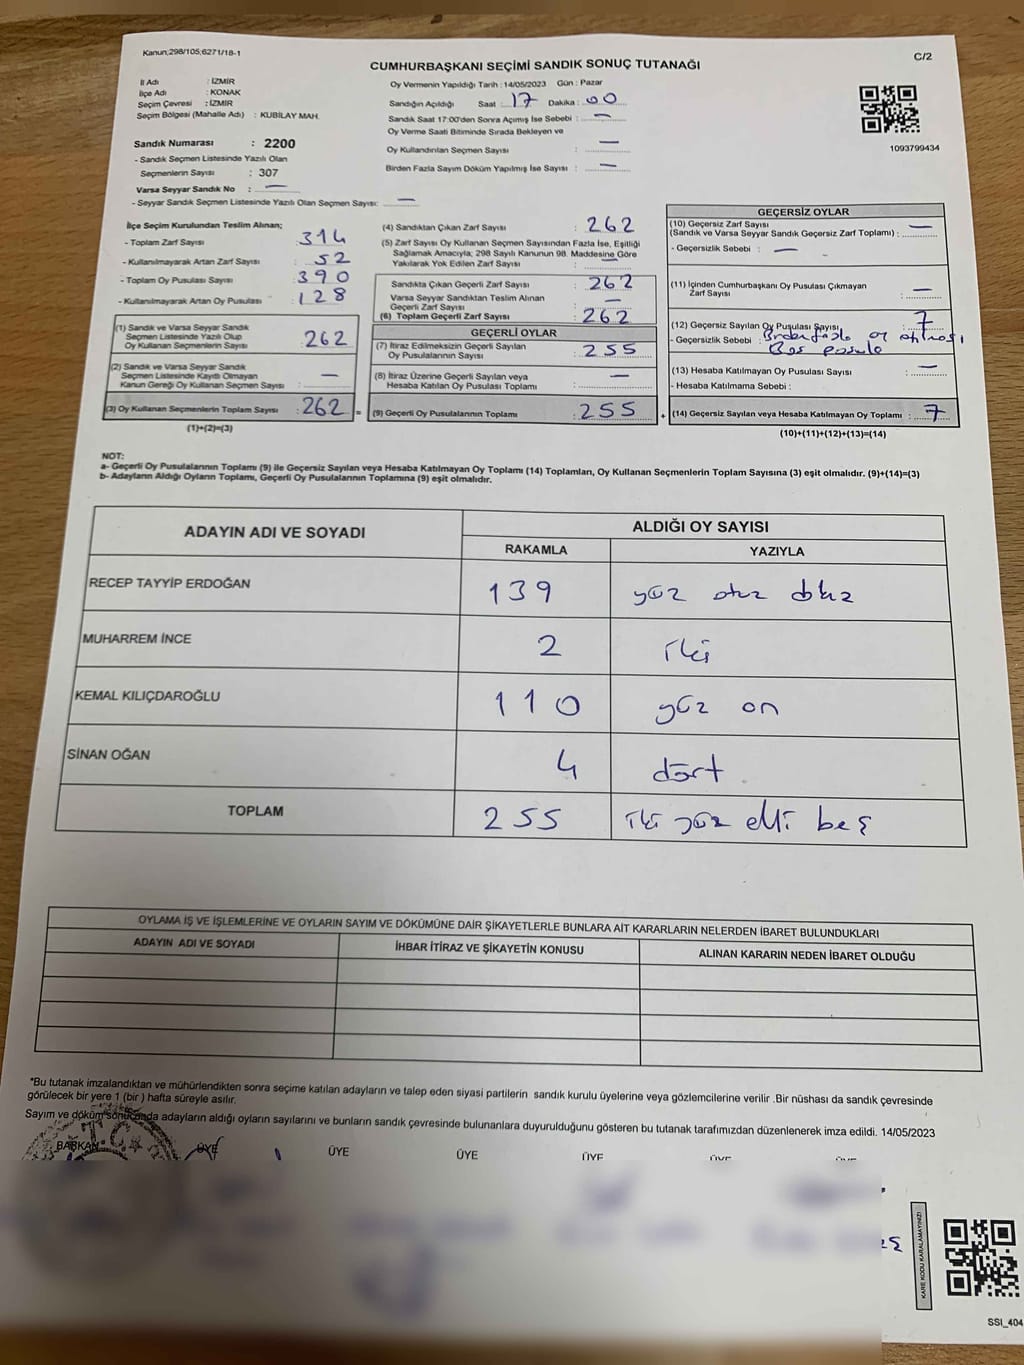 Kanun;298/105;6271/18-1
C/2
CUMHURBAŞKANI SEÇİMİ SANDIK SONUÇ TUTANAĞI
İl Adı : İZMİR
İlçe Adı : KONAK
Seçim Çevresi : İZMİR
Seçim Bölgesi (Mahalle Adı) : KUBİLAY MAH.
Sandık Numarası : 2200
- Sandık Seçmen Listesinde Yazılı Olan
Seçmenlerin Sayısı : 307
Varsa Seyyar Sandık No : —
- Seyyar Sandık Seçmen Listesinde Yazılı Olan Seçmen Sayısı: —
Oy Vermenin Yapıldığı Tarih : 14/05/2023 Gün : Pazar
Sandığın Açıldığı Saat : 17 Dakika : 00
Sandık Saat 17:00'den Sonra Açımış İse Sebebi : —
Oy Verme Saati Bitiminde Sırada Bekleyen ve
Oy Kullandırılan Seçmen Sayısı : —
Birden Fazla Sayım Döküm Yapılmış İse Sayısı : —
1093799434
İlçe Seçim Kurulundan Teslim Alınan;
- Toplam Zarf Sayısı : 314
- Kullanılmayarak Artan Zarf Sayısı : 52
- Toplam Oy Pusulası Sayısı : 390
- Kullanılmayarak Artan Oy Pusulası : 128
(1) Sandık ve Varsa Seyyar Sandık
Seçmen Listesinde Yazılı Olup
Oy Kullanan Seçmenlerin Sayısı : 262
(2) Sandık ve Varsa Seyyar Sandık
Seçmen Listesinde Kaydı Olmayan
Kanun Gereği Oy Kullanan Seçmen Sayısı : —
(3) Oy Kullanan Seçmenlerin Toplam Sayısı : 262 =
(1)+(2)=(3)
(4) Sandıktan Çıkan Zarf Sayısı : 262
(5) Zarf Sayısı Oy Kullanan Seçmen Sayısından Fazla İse, Eşitliği
Sağlamak Amacıyla; 298 Sayılı Kanunun 98. Maddesine Göre
Yakılarak Yok Edilen Zarf Sayısı : —
Sandıkta Çıkan Geçerli Zarf Sayısı : 262
Varsa Seyyar Sandıktan Teslim Alınan
Geçerli Zarf Sayısı : —
(6) Toplam Geçerli Zarf Sayısı : 262
GEÇERLİ OYLAR
(7) İtiraz Edilmeksizin Geçerli Sayılan
Oy Pusulalarının Sayısı : 255
(8) İtiraz Üzerine Geçerli Sayılan veya
Hesaba Katılan Oy Pusulası Toplamı : —
(9) Geçerli Oy Pusulalarının Toplamı : 255 +
GEÇERSİZ OYLAR
(10) Geçersiz Zarf Sayısı
(Sandık ve Varsa Seyyar Sandık Geçersiz Zarf Toplamı) : —
- Geçersizlik Sebebi : —
(11) İçinden Cumhurbaşkanı Oy Pusulası Çıkmayan
Zarf Sayısı : —
(12) Geçersiz Sayılan Oy Pusulası Sayısı : 7
- Geçersizlik Sebebi : Birden fazla oy atılması
Boş pusula
(13) Hesaba Katılmayan Oy Pusulası Sayısı : —
- Hesaba Katılmama Sebebi :
(14) Geçersiz Sayılan veya Hesaba Katılmayan Oy Toplamı : 7
(10)+(11)+(12)+(13)=(14)
NOT:
a- Geçerli Oy Pusulalarının Toplamı (9) ile Geçersiz Sayılan veya Hesaba Katılmayan Oy Toplamı (14) Toplamları, Oy Kullanan Seçmenlerin Toplam Sayısına (3) eşit olmalıdır. (9)+(14)=(3)
b- Adayların Aldığı Oyların Toplamı, Geçerli Oy Pusulalarının Toplamına (9) eşit olmalıdır.
ADAYIN ADI VE SOYADI
ALDIĞI OY SAYISI
RAKAMLA YAZIYLA
RECEP TAYYİP ERDOĞAN 139 yüz otuz dokuz
MUHARREM İNCE 2 iki
KEMAL KILIÇDAROĞLU 110 yüz on
SİNAN OĞAN 4 dört
TOPLAM 255 iki yüz elli beş
OYLAMA İŞ VE İŞLEMLERİNE VE OYLARIN SAYIM VE DÖKÜMÜNE DAİR ŞİKAYETLERLE BUNLARA AİT KARARLARIN NELERDEN İBARET BULUNDUKLARI
ADAYIN ADI VE SOYADI İHBAR İTİRAZ VE ŞİKAYETİN KONUSU ALINAN KARARIN NEDEN İBARET OLDUĞU
*Bu tutanak imzalandıktan ve mühürlendikten sonra seçime katılan adayların ve talep eden siyasi partilerin sandık kurulu üyelerine veya gözlemcilerine verilir .Bir nüshası da sandık çevresinde
görülecek bir yere 1 (bir ) hafta süreyle asılır.
Sayım ve döküm sonucunda adayların aldığı oyların sayılarını ve bunların sandık çevresinde bulunanlara duyurulduğunu gösteren bu tutanak tarafımızdan düzenlenerek imza edildi. 14/05/2023
T.C.
BAŞKAN ÜYE ÜYE ÜYE ÜYE ÜYE ÜYE
KARE KODU KARALAMAYINIZ!
SSI_404